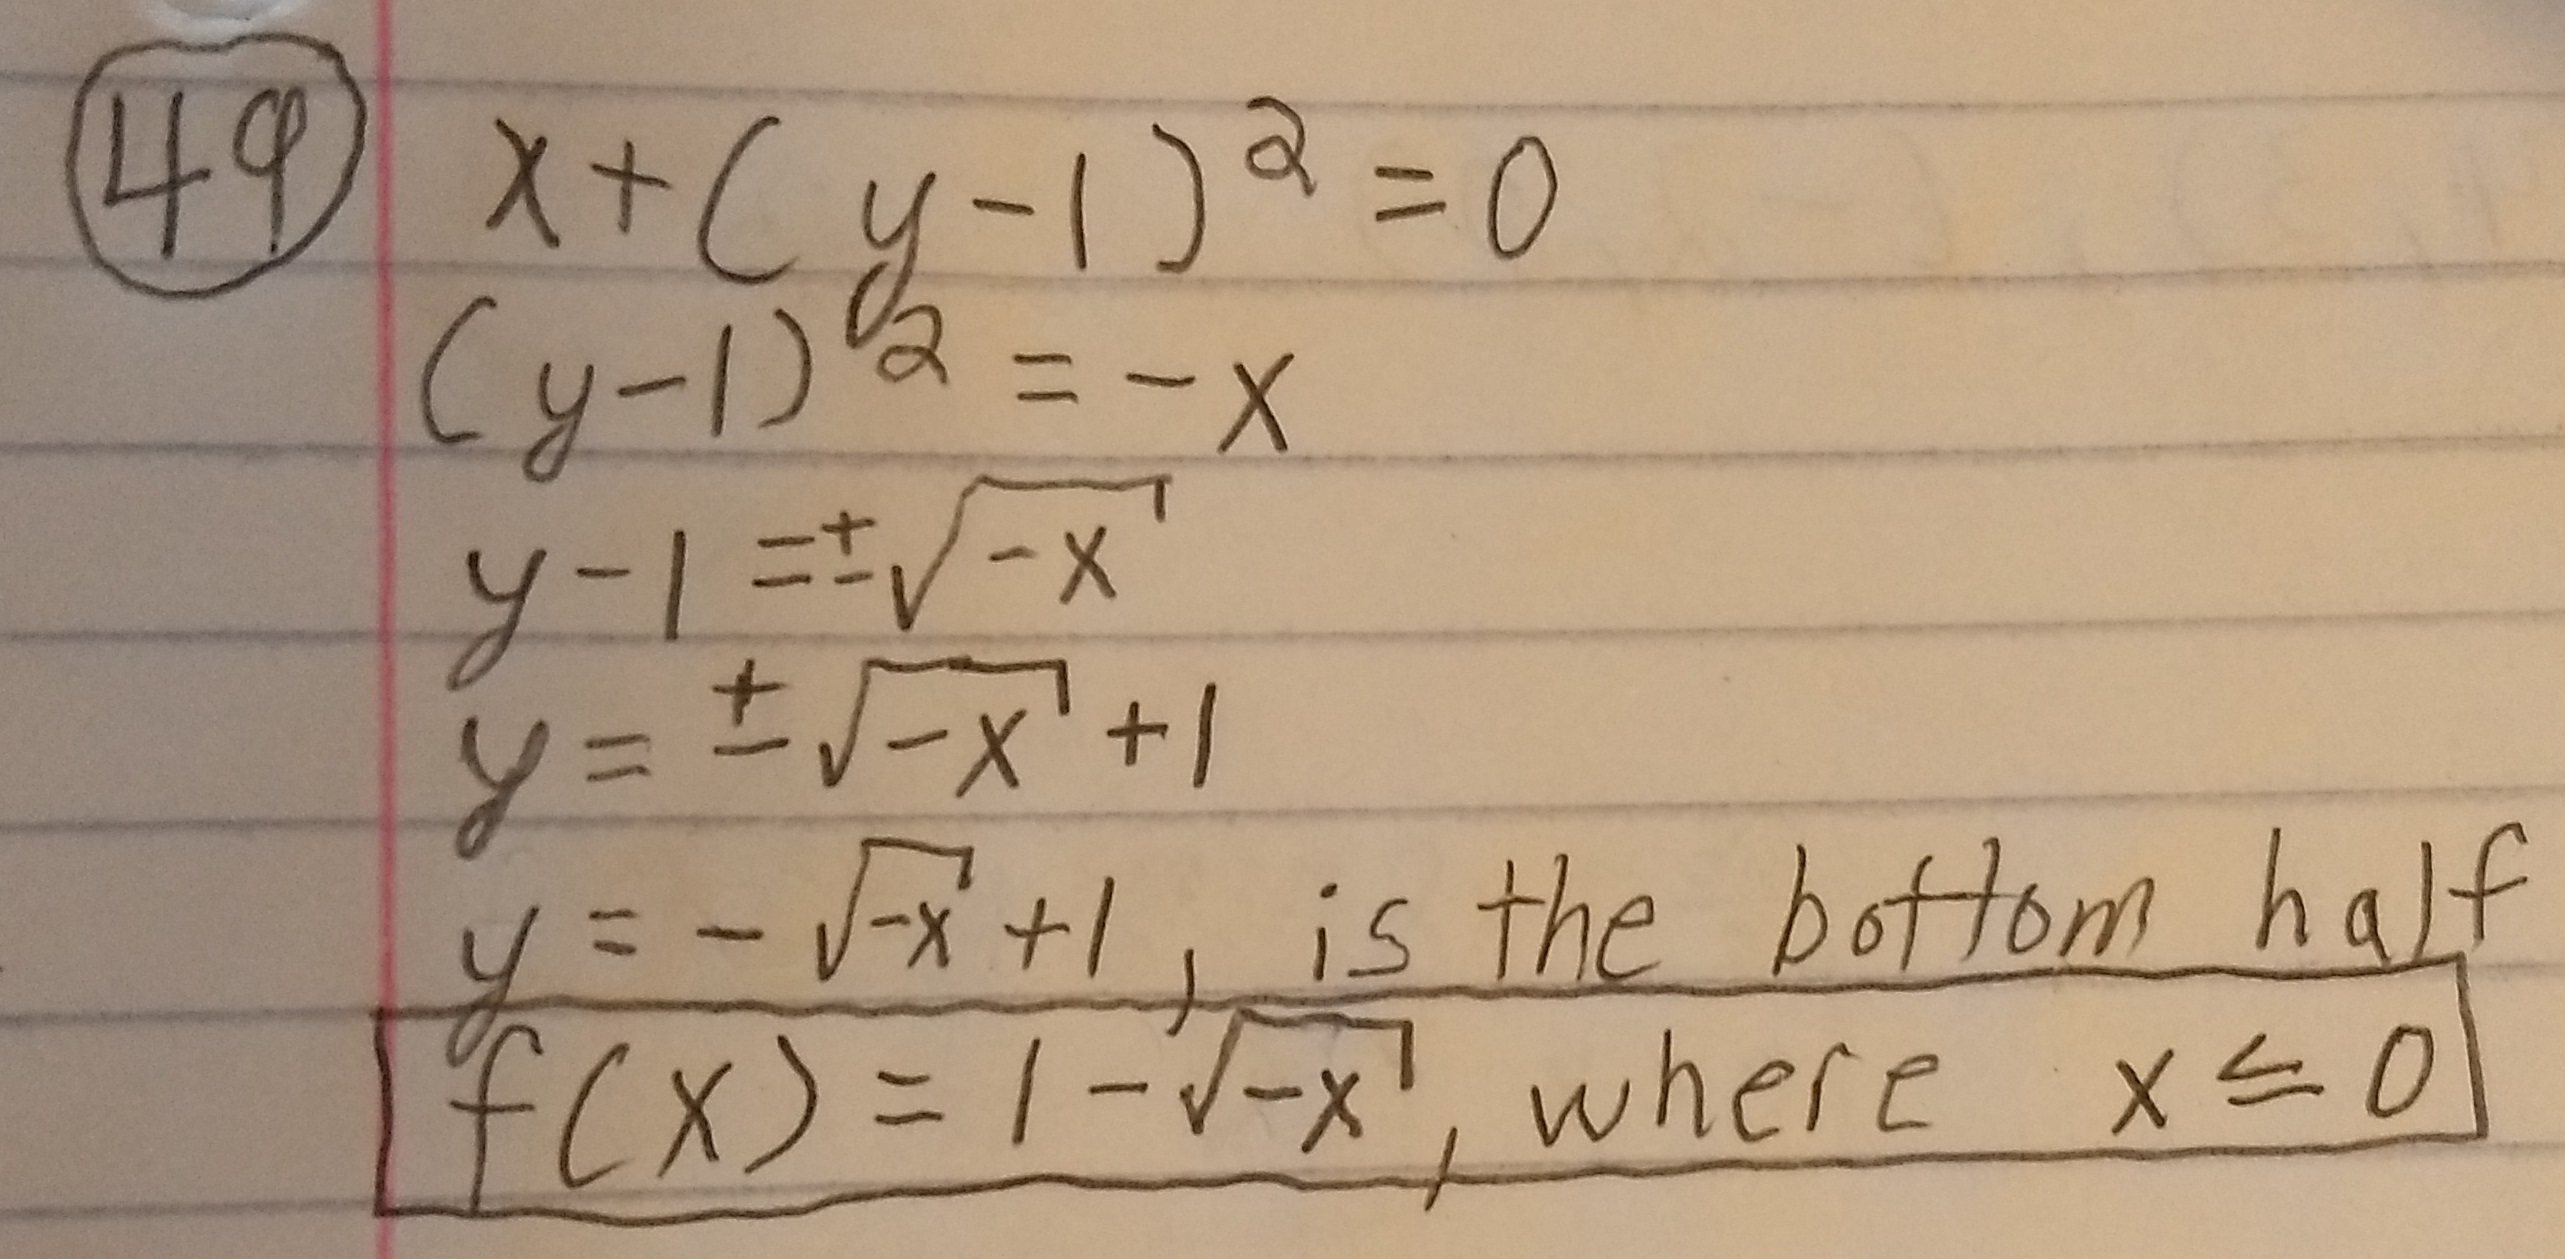 49 x+(y-1)²=0
(y-1)²=-x
y-1=±√-x
y=±√-x+1
y=-√-x+1, is the bottom half
f(x)=1-√-x, where x≤0